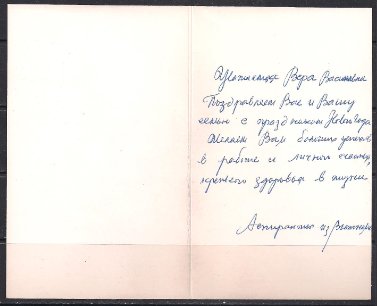 Уважаемая Вера Васильевна
Поздравляем Вас и Вашу
семью с праздником Нового года
Желаем Вам больших успехов
в работе и личного счастья,
крепкого здоровья в жизни
Аспиранты из